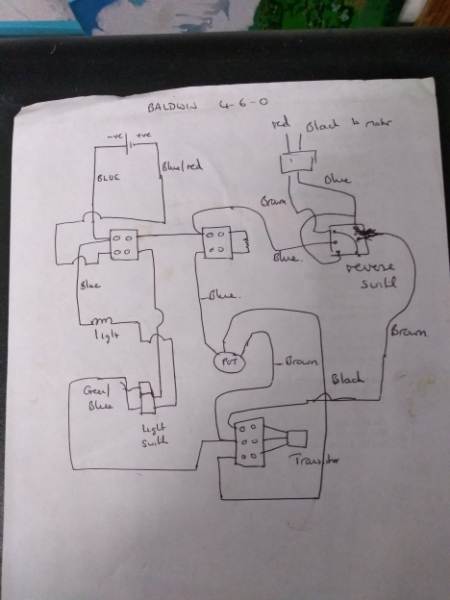 BALDWIN 4-6-0
-ve +ve
red Black to motor
BLUE
Blue/red
Brown
Blue
Blue
Blue.
reverse
switch
Blue.
light
POT
Brown
Brown.
Black
Green/
Blue
light
switch
Transistor